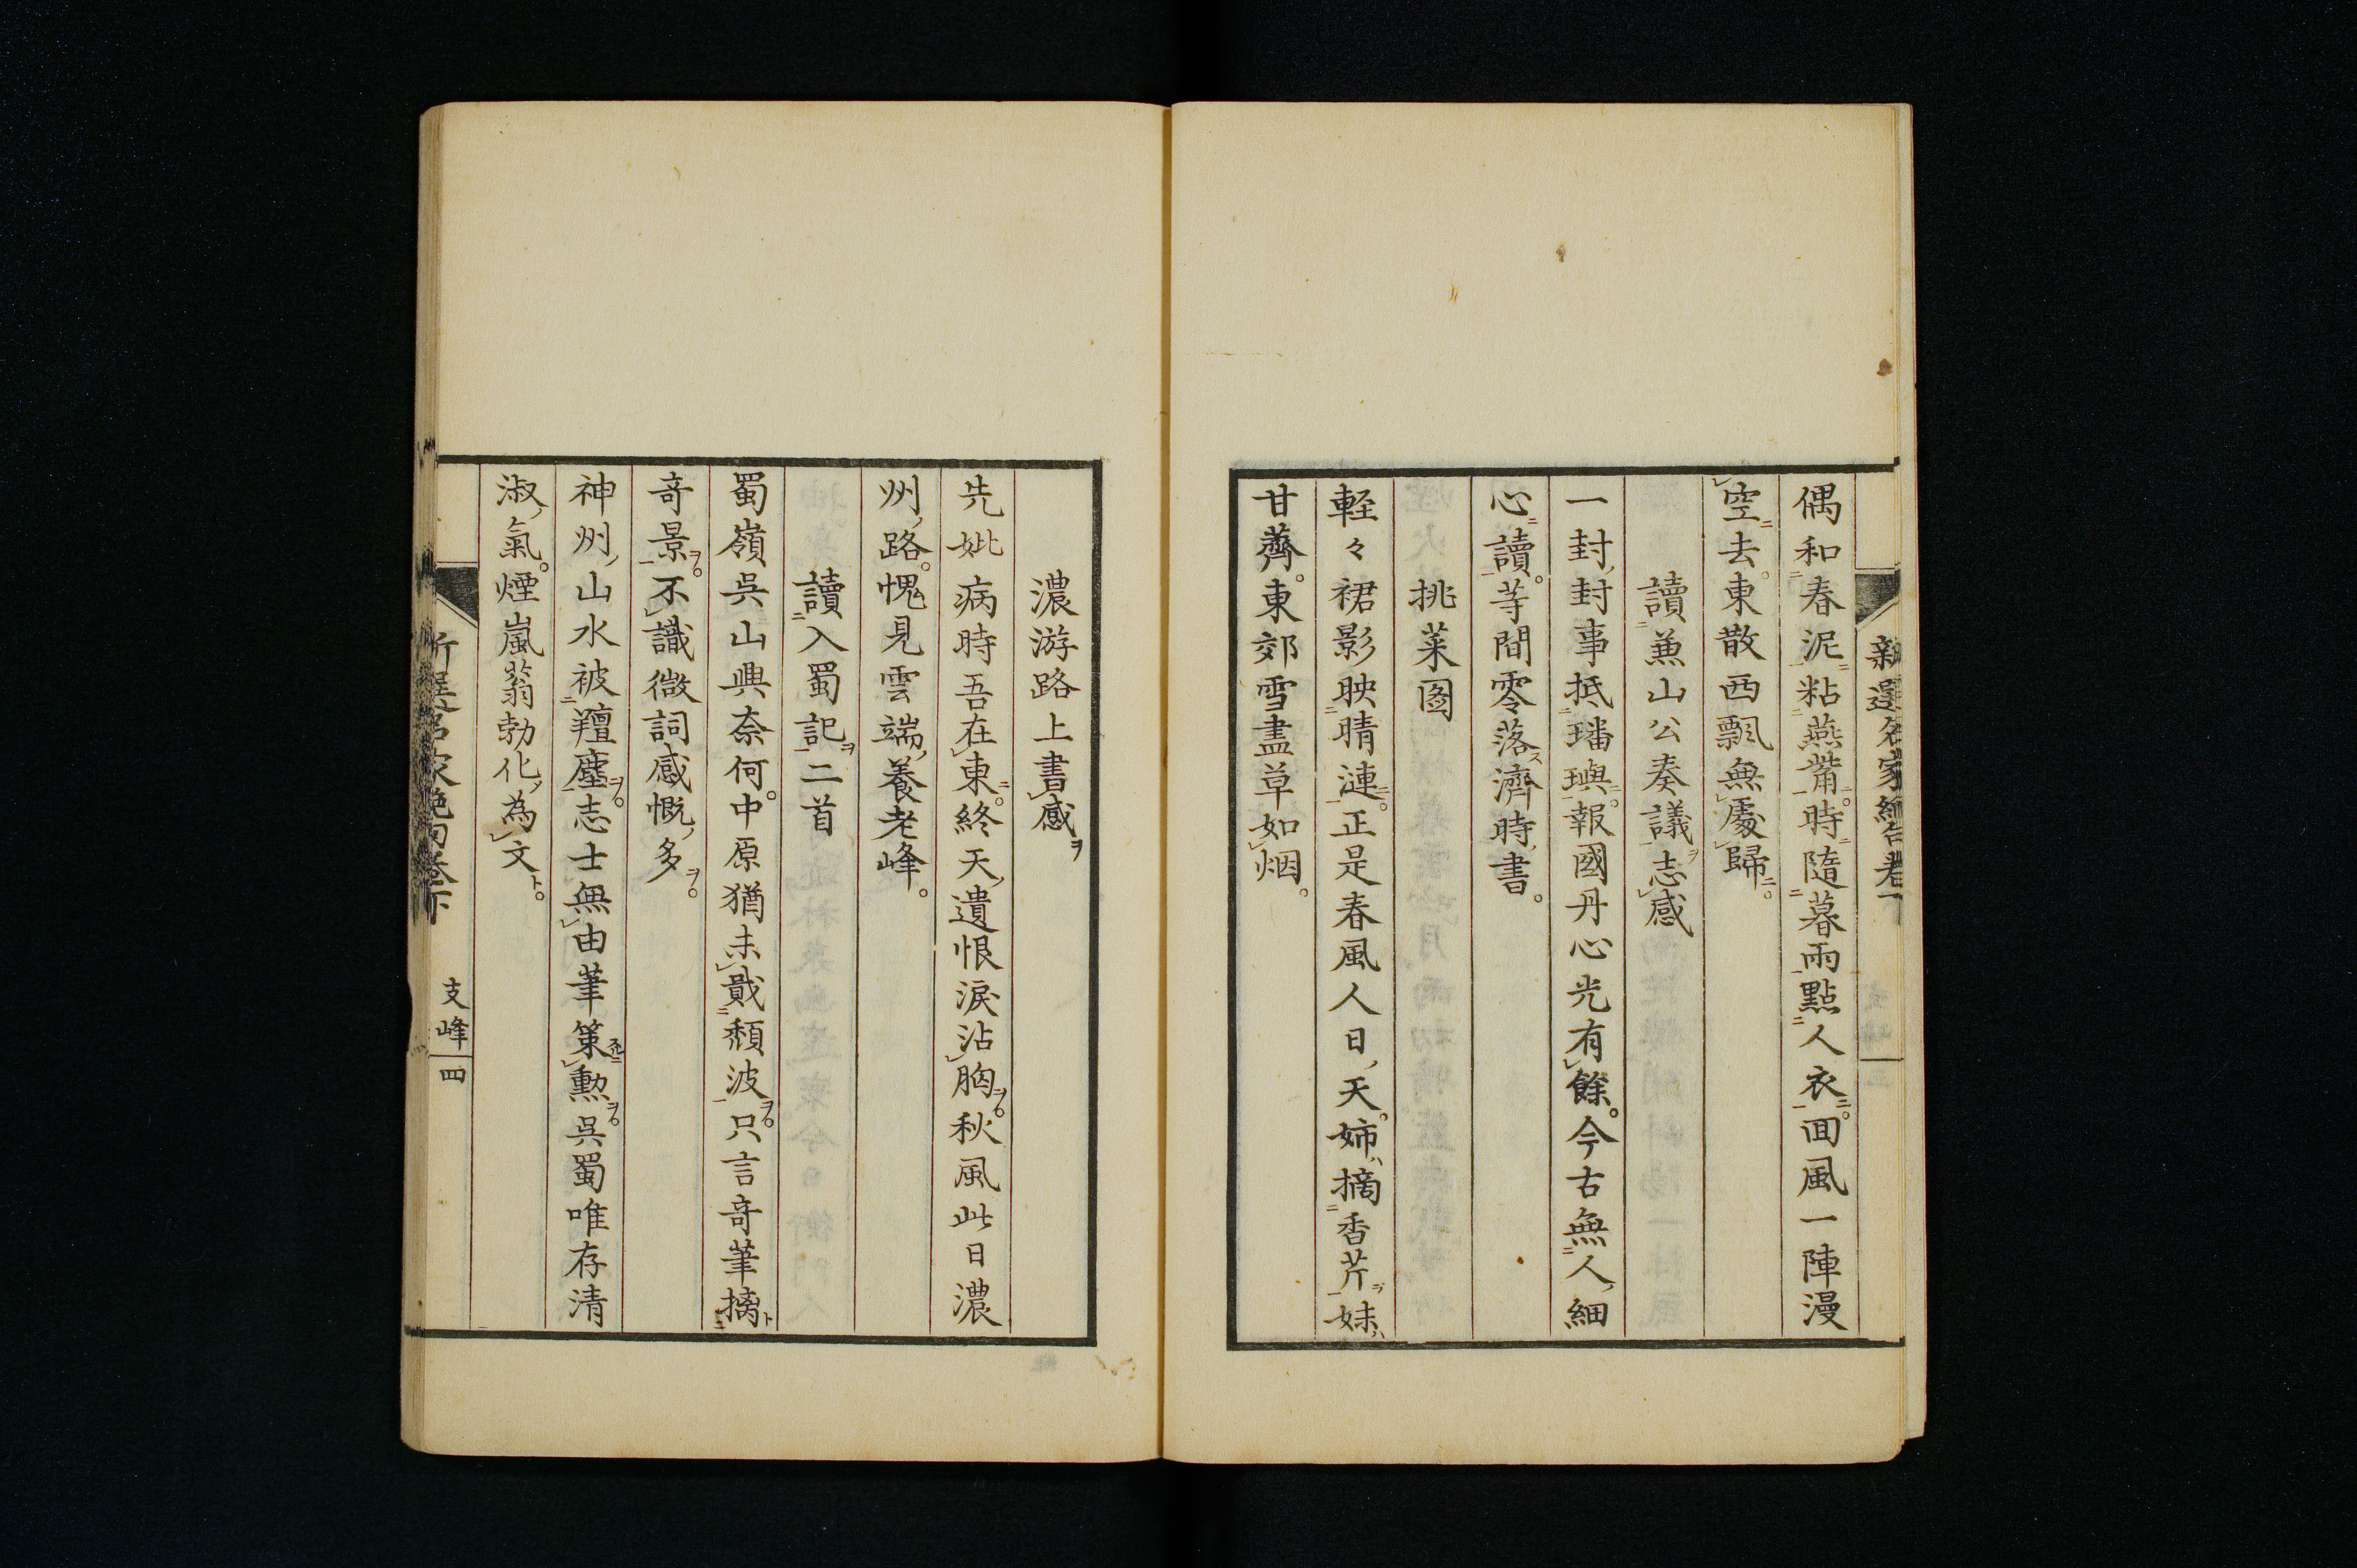 偶和春泥粘燕觜時隨暮雨點人衣囬風一陣漫
空去東散西飄無處歸
讀兼山公奏議志感
一封封事抵璠璵報國丹心光有餘今古無人細
心讀等間零落濟時書
挑菜圖
輕々裙影映晴漣正是春風人日天姉摘香芹妹
甘薺東郊雪盡草如烟
濃游路上書感
先妣病時吾在東終天遺恨淚沾胸秋風此日濃
州路愧見雲端養老峰
讀入蜀記二首
蜀嶺吳山興奈何中原猶未戢頽波只言奇筆摛
奇景不識微詞感慨多
神州山水被羶塵志士無由筆策勲吳蜀唯存清
淑氣煙嵐蓊勃化為文
支峰 四